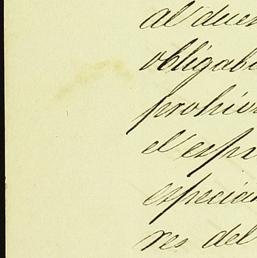 al due
obligab
prohiv
el espr
especia
res del